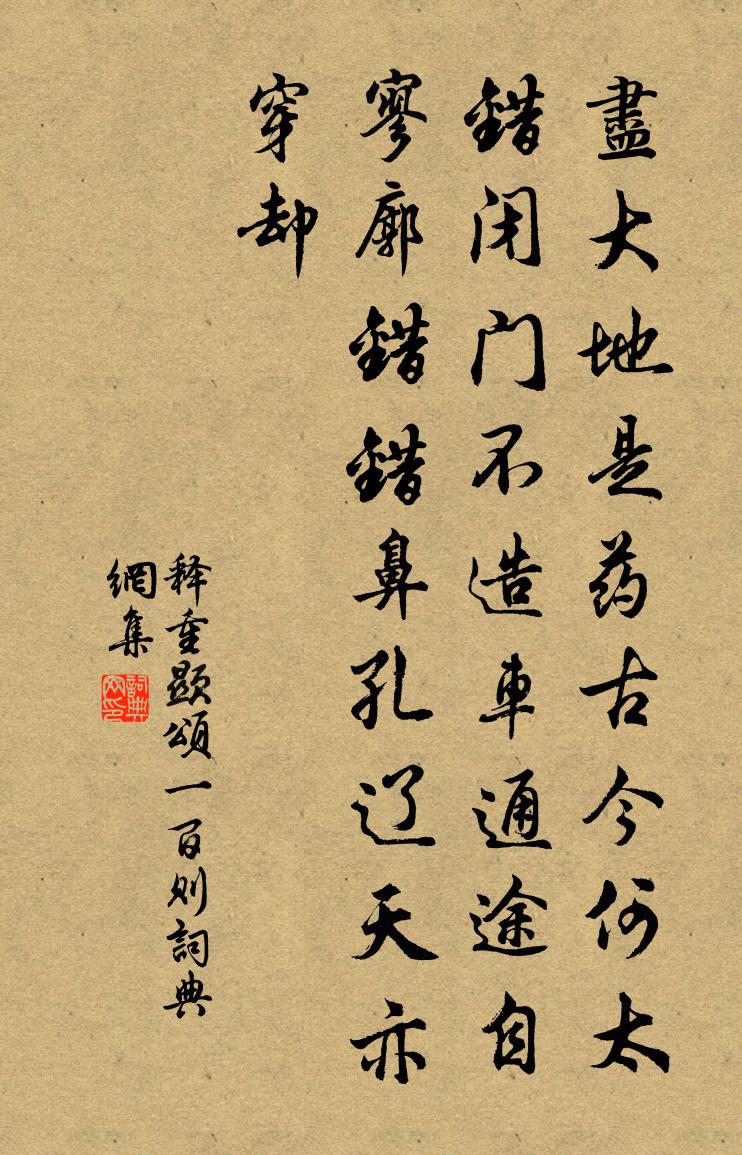 盡大地是药古今何太
錯闭门不造車通途自
寥廓錯錯鼻孔辽天亦
穿却
释重顯頌一百则詞典
網集
詞典网印